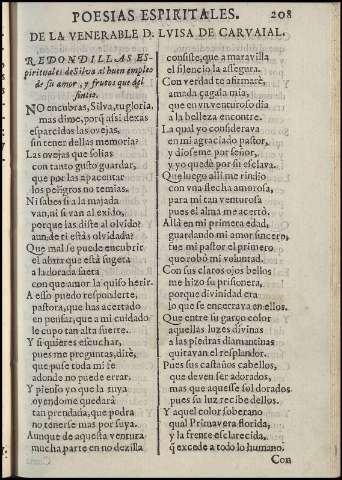 POESIAS ESPIRITALES. 208
DE LA VENERABLE D. LVISA DE CARVAIAL.
REDONDILLAS ES-
pirituales de Silva al buen empleo
de su amor, y frutos que del
sintio.
NO encubras, Silva, tu gloria,
mas dime, porq̃ assi dexas
esparcidas las ovejas,
sin tener dellas memoria?
Las ovejas que solias
con tanto gusto guardar,
que por las apacentar
los peligros no temias.
Ni sabes si a la majada
van, ni si van al exido,
porque las diste al olvido?
aun de ti estàs olvidada?
Que mal se puede encubrir
el ahirè que està sugeta
a la dorada saeta
con que amor la quiso herir.
A esso puedo responderte,
pastora, que has acertado
en pensar, que a mi cuidado
le cupo tan alta suerte.
Y si quieres escuchar,
pues me preguntas, dirè,
que puse toda mi fe
adonde no puede errar.
Y pienso yo que la tuya
oyendome quedarà
tan prendada, que podra
no tenerse mas por suya.
Aunque de aquesta ventura
mucha parte en no dezilla
consiste, que a maravilla
el silencio la assegura.
Con verdad te afirmarè,
amada çagala mia,
que en vn venturoso dia
a la belleza encontre.
La qual yo considerava
en mi agraciado pastor,
y dioseme por señor,
y yo quedè por su esclava.
Que luego alli me rindio
con vna flecha amorosa,
para mi tan venturosa
pues el alma me acertò.
Allà en mi primera edad,
guardando mi amor sincero,
fue mi pastor el primero
que robò mi voluntad.
Con sus claros ojos bellos
me hizo su prisionera,
porque divinidad era
lo que se encerrava en ellos.
Que entre su garço color
aquellas luzes divinas
a las piedras diamantinas
quitavan el resplandor.
Pues sus castaños cabellos,
que deven ser adorados,
mas que aquesse sol dorados
pues su luz recibe dellos.
Y aquel color soberano
qual Primavera florida,
y la frente esclarecida,
q̃ excede a todo lo humano.
Con